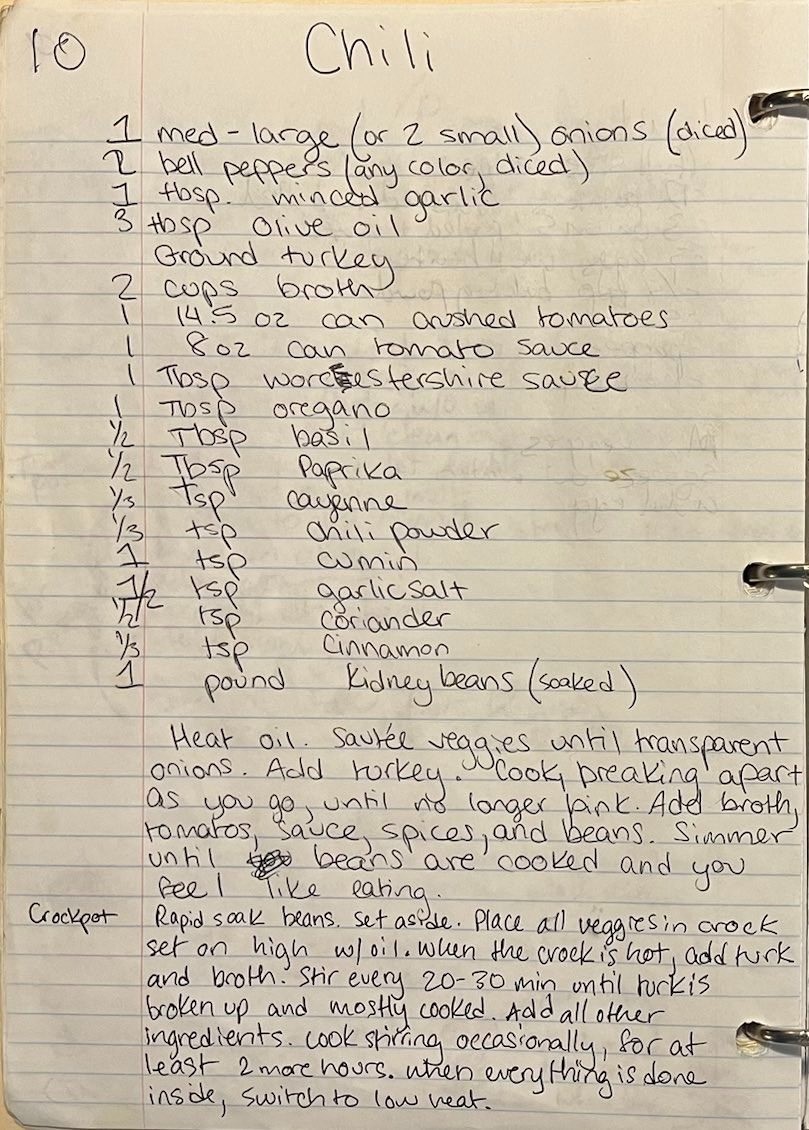 10 Chili
1 med-large (or 2 small) onions (diced)
2 bell peppers (any color, diced)
1 tbsp. minced garlic
3 tbsp Olive oil
Ground turkey
2 cups broth
1 14.5 oz can crushed tomatoes
1 8 oz can tomato sauce
1 Tbsp worcestershire sauce
1 Tbsp oregano
1/2 Tbsp basil
1/2 Tbsp Paprika
1/3 Tsp cayenne
1/3 tsp chili powder
1 tsp cumin
1/2 tsp garlic salt
1/2 tsp coriander
1/3 tsp Cinnamon
1 pound Kidney beans (soaked)
Heat oil. Sautée veggies until transparent
onions. Add turkey. Cook, breaking apart
as you go, until no longer pink. Add broth,
tomatos, sauce, spices, and beans. Simmer
until beans are cooked and you
feel like eating.
Crockpot Rapid soak beans. Set aside. Place all veggies in crock
set on high w/ oil. When the crock is hot, add turk
and broth. Stir every 20-30 min until turk is
broken up and mostly cooked. Add all other
ingredients. Cook stirring occasionally, for at
least 2 more hours. When everything is done
inside, switch to low heat.